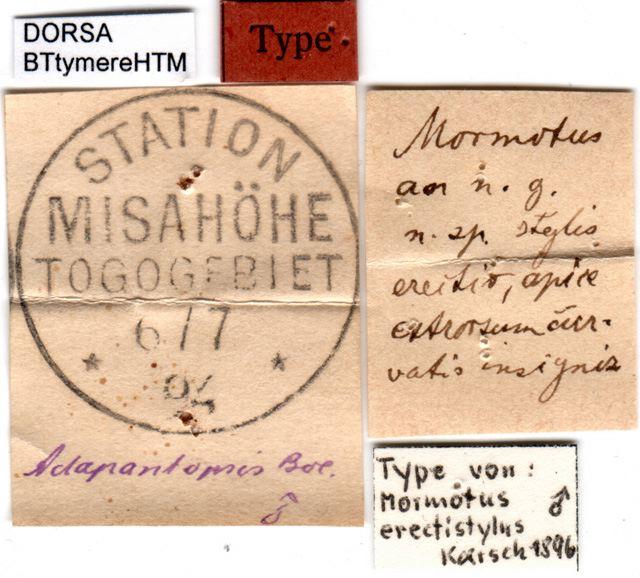 DORSA
BTtymereHTM
Type.
STATION
MISAHÖHE
TOGOGEBIET
6/7
94
Adapantopsis Bol.
♂
Mormotus
an n. g.
n. sp. stylis
erectis, apice
extrorsum cur-
vatis insignis
Type von:
Mormotus ♂
erectistylus
Karsch 1896